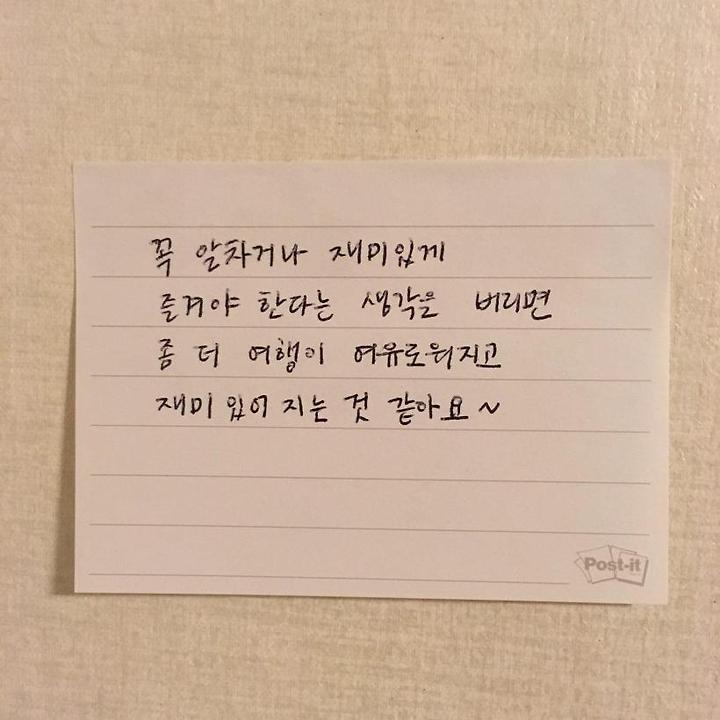 꼭 알차거나 재미있게
즐겨야 한다는 생각을 버리면
좀 더 여행이 여유로워지고
재미있어 지는 것 같아요~
Post-it